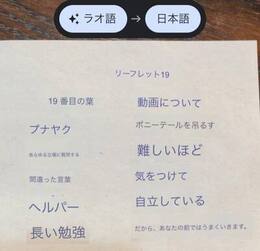 ラオ語 → 日本語
リーフレット19
19番目の葉
動画について
プナヤク
ポニーテールを吊るす
あらゆる立場に質問する
難しいほど
間違った言葉
気をつけて
ヘルパー
自立している
長い勉強
だから、あなたの前ではうまくいきます。